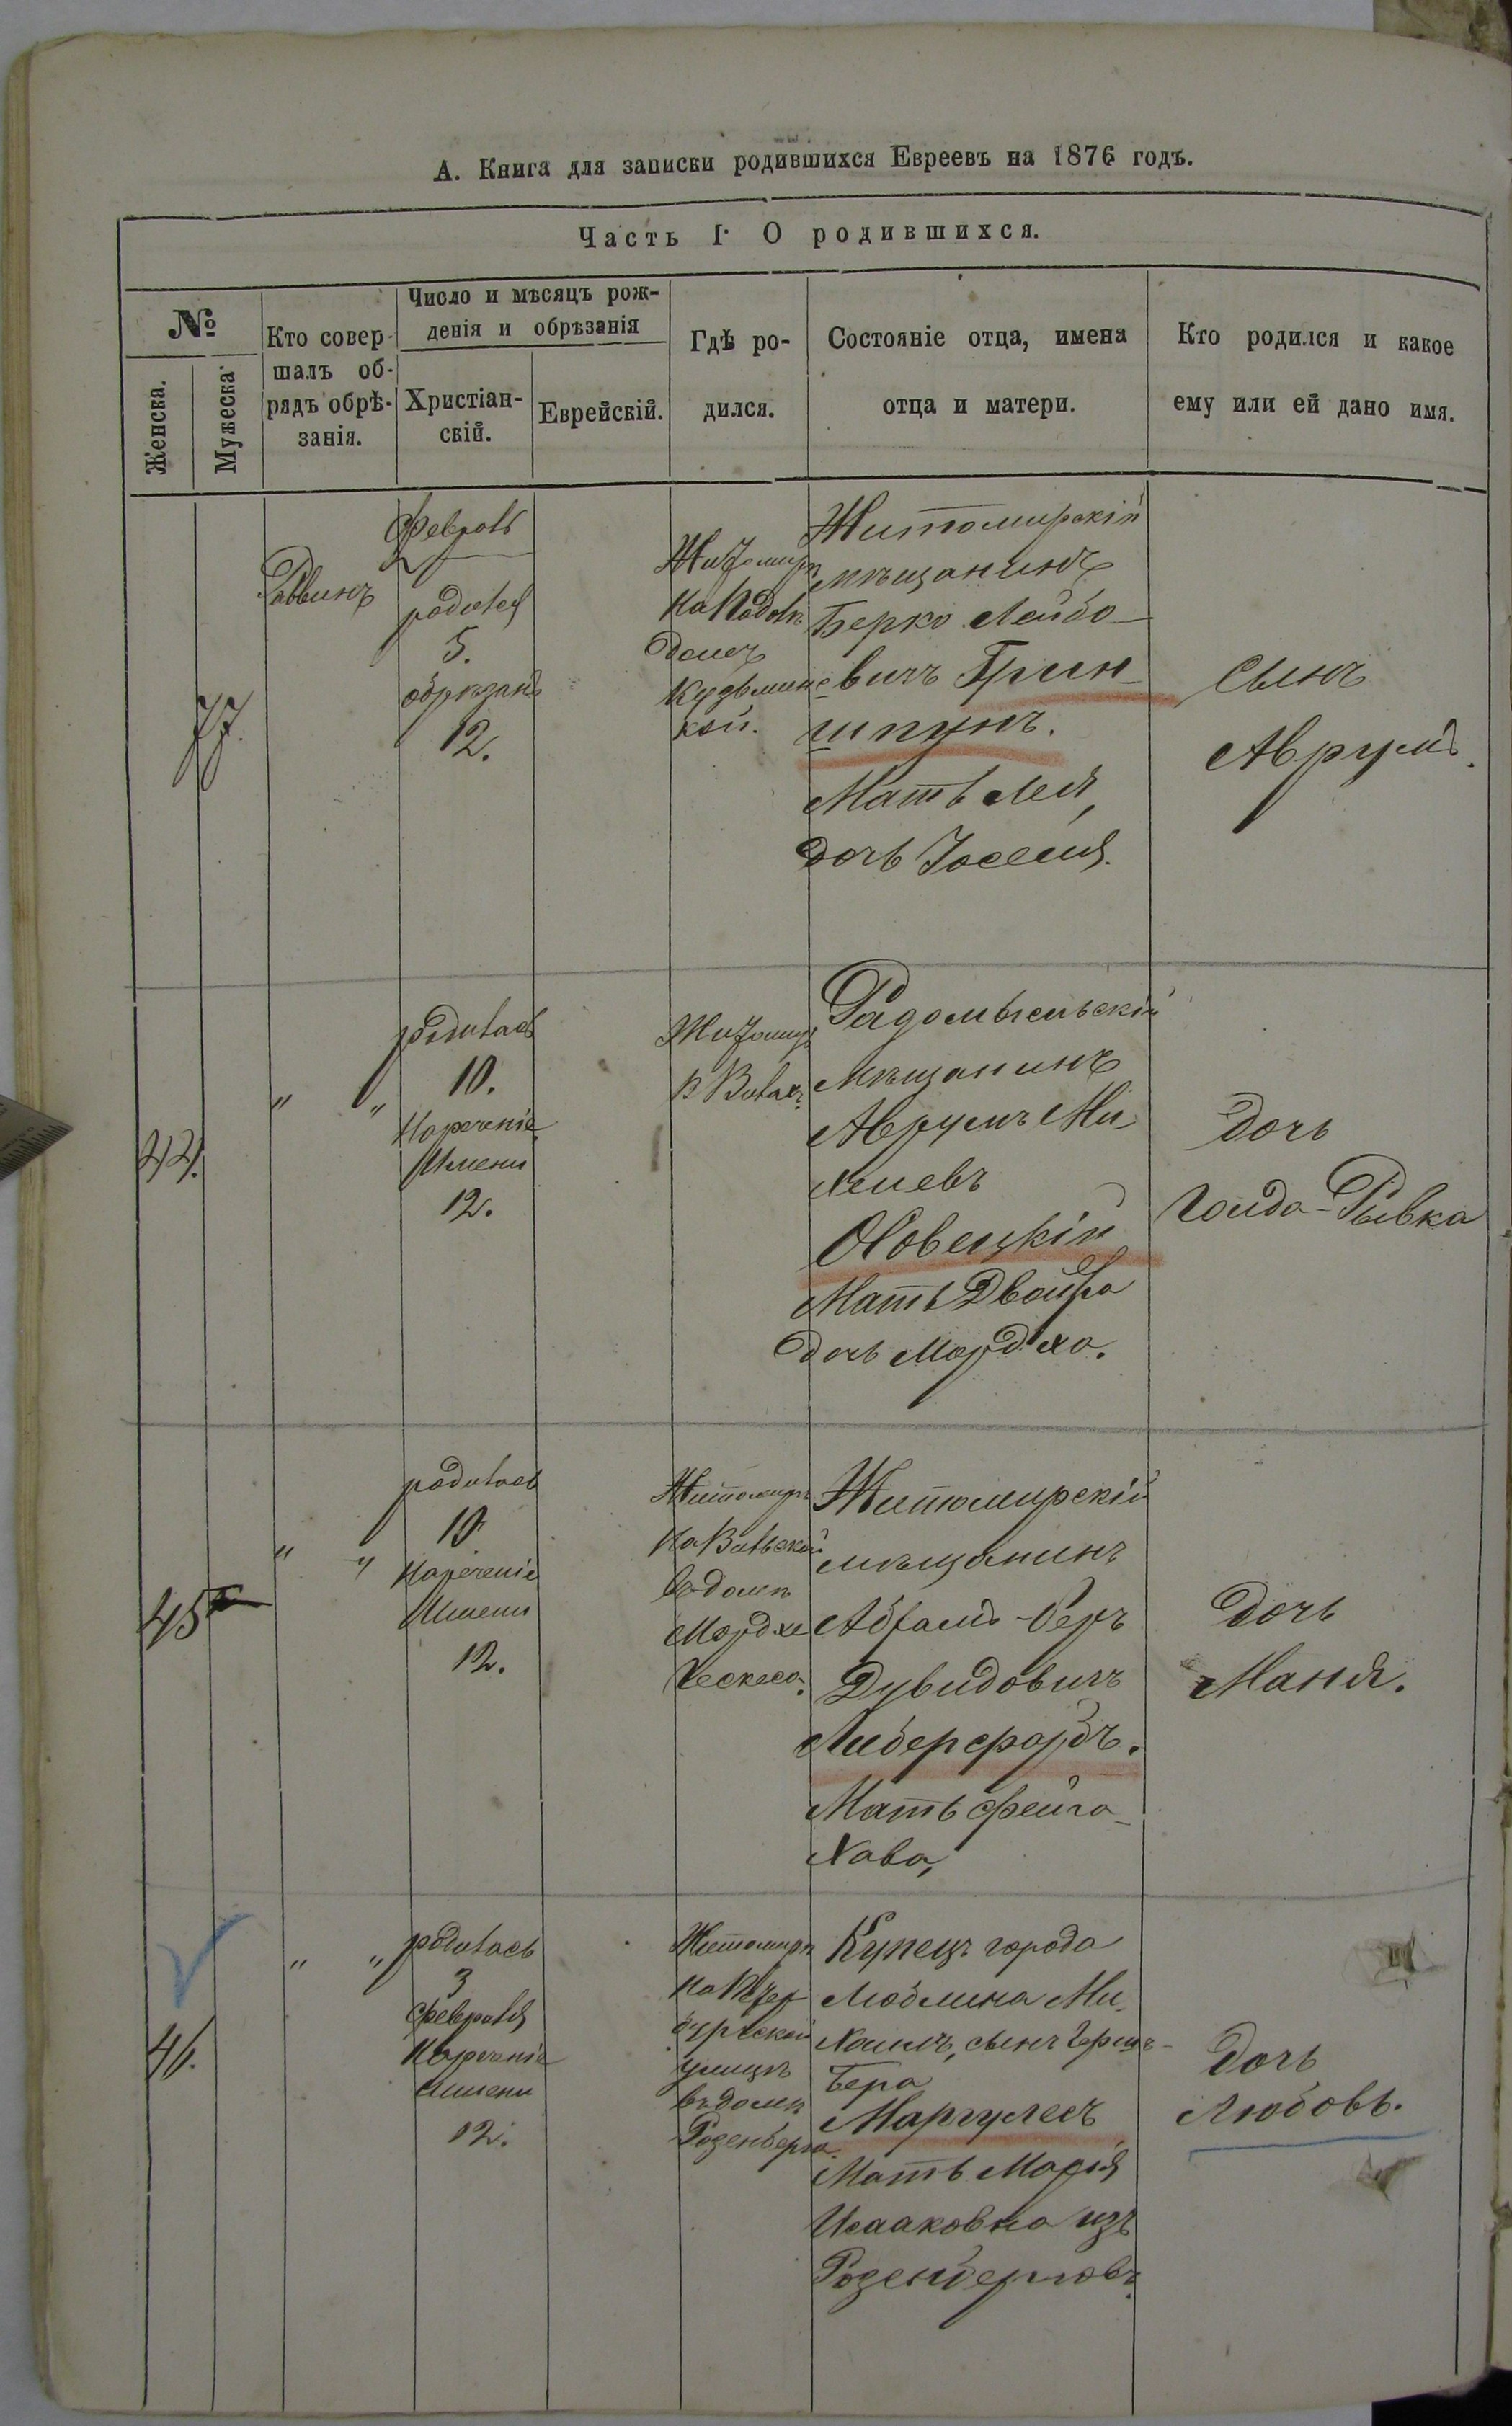 А. Книга для записки родившихся Евреевъ на 1876 годъ.
Часть I. О родившихся.
№
Женска.
Мужеска.
Кто совер-
шалъ об-
рядъ обрѣ-
занія.
Число и мѣсяцъ рож-
денія и обрѣзанія
Христіан-
скій.
Еврейскій.
Гдѣ ро-
дился.
Состояніе отца, имена
отца и матери.
Кто родился и какое
ему или ей дано имя.
77.
Раввинъ
Февраль
родился
5.
обрѣзанъ
12.
Житомиръ
на Подолѣ
домъ
Кудьминс
кой.
Житомирскій
мѣщанинъ
Берко Лейбо-
вичъ Грин-
шпунъ.
Мать Лея,
дочь Иоселия.
Сынъ
Аврумъ.
44.
" "
родилась
10.
Нареченіе
Имени
12.
Житомиръ
в Вилах
Радомысльскій
мѣщанинъ
Аврумъ Ми-
хелевъ
Мать Двойра
дочь Мордха.
Дочь
Голда-Рывка
45
" "
родилась
10
нареченіе
Имени
12.
Житомиръ
на Вильской
въ домѣ
Мордхе
Житомирскій
мѣщанинъ
Абрамъ-Беръ
Дувидовичъ
Либерфарбъ.
Мать Фейга-
Хава,
Дочь
Маня.
46.
" "
родилась
3
Февраля
Нареченіе
Имени
12.
Житомиръ
на Петер
бургской
улицѣ
въ домѣ
Розенберга.
Купецъ города
Люблина Ми-
хаилъ, сынъ Гершъ-
Бера
Маргулесъ
Мать Марія
Исааковна изъ
Розенберговъ.
Дочь
Любовь.